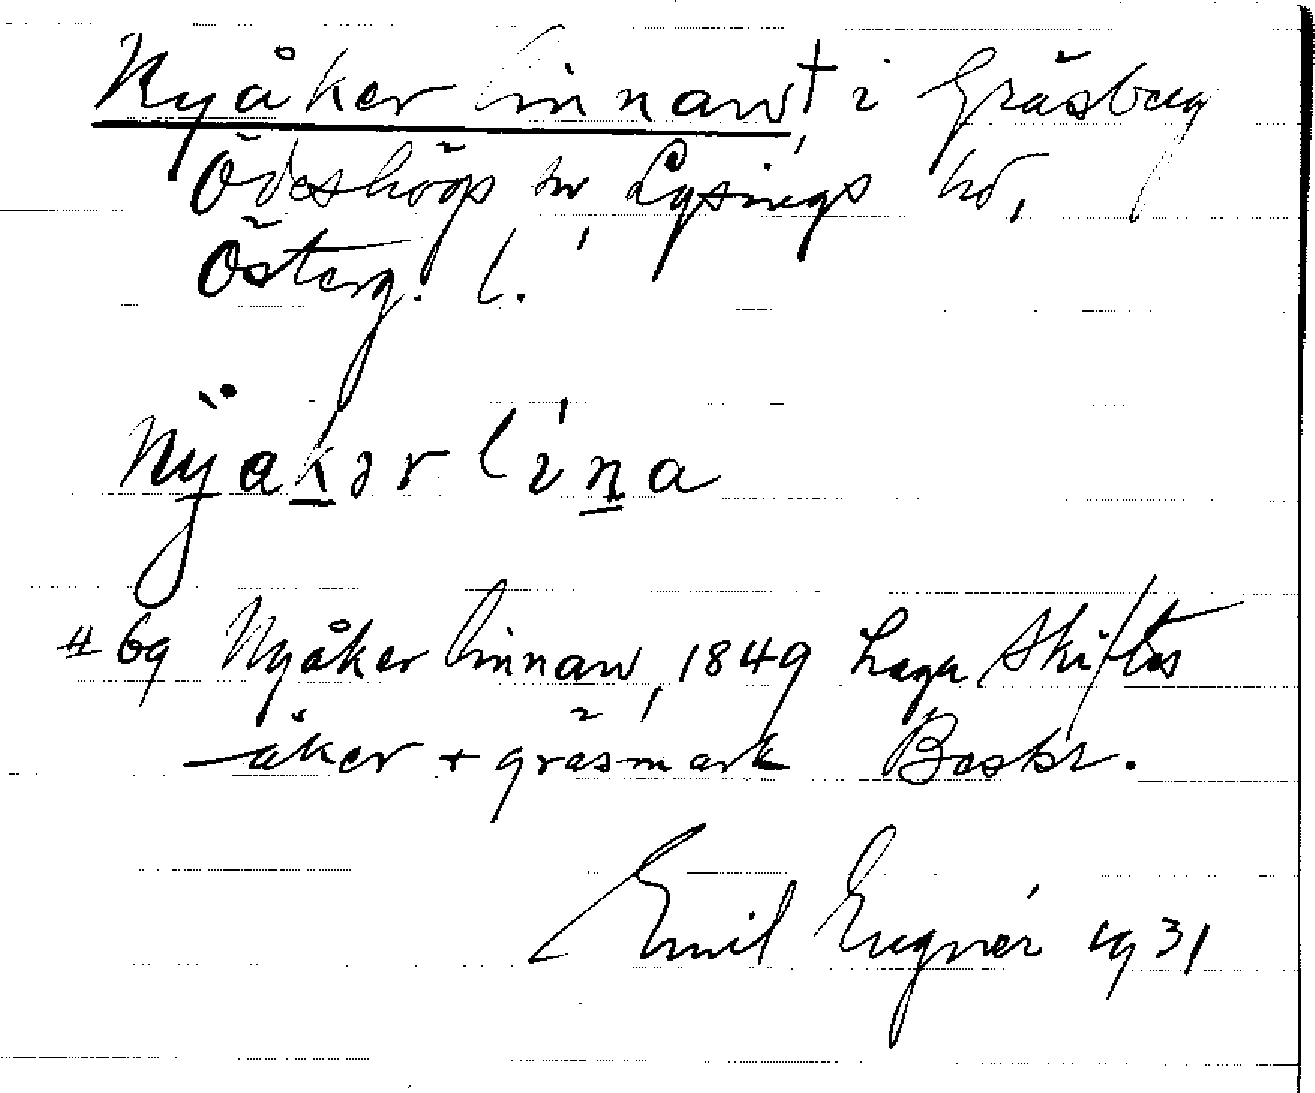 Nyåker linnaw,† i Gräsberg
Ödeshögs sn, Lysings hd,
Österg. l.
Nÿakər lína
# 69 Nyåker linnaw, 1849 Laga Skiftes
åker + gräsmark Beskr.
Emil Engnér 1931